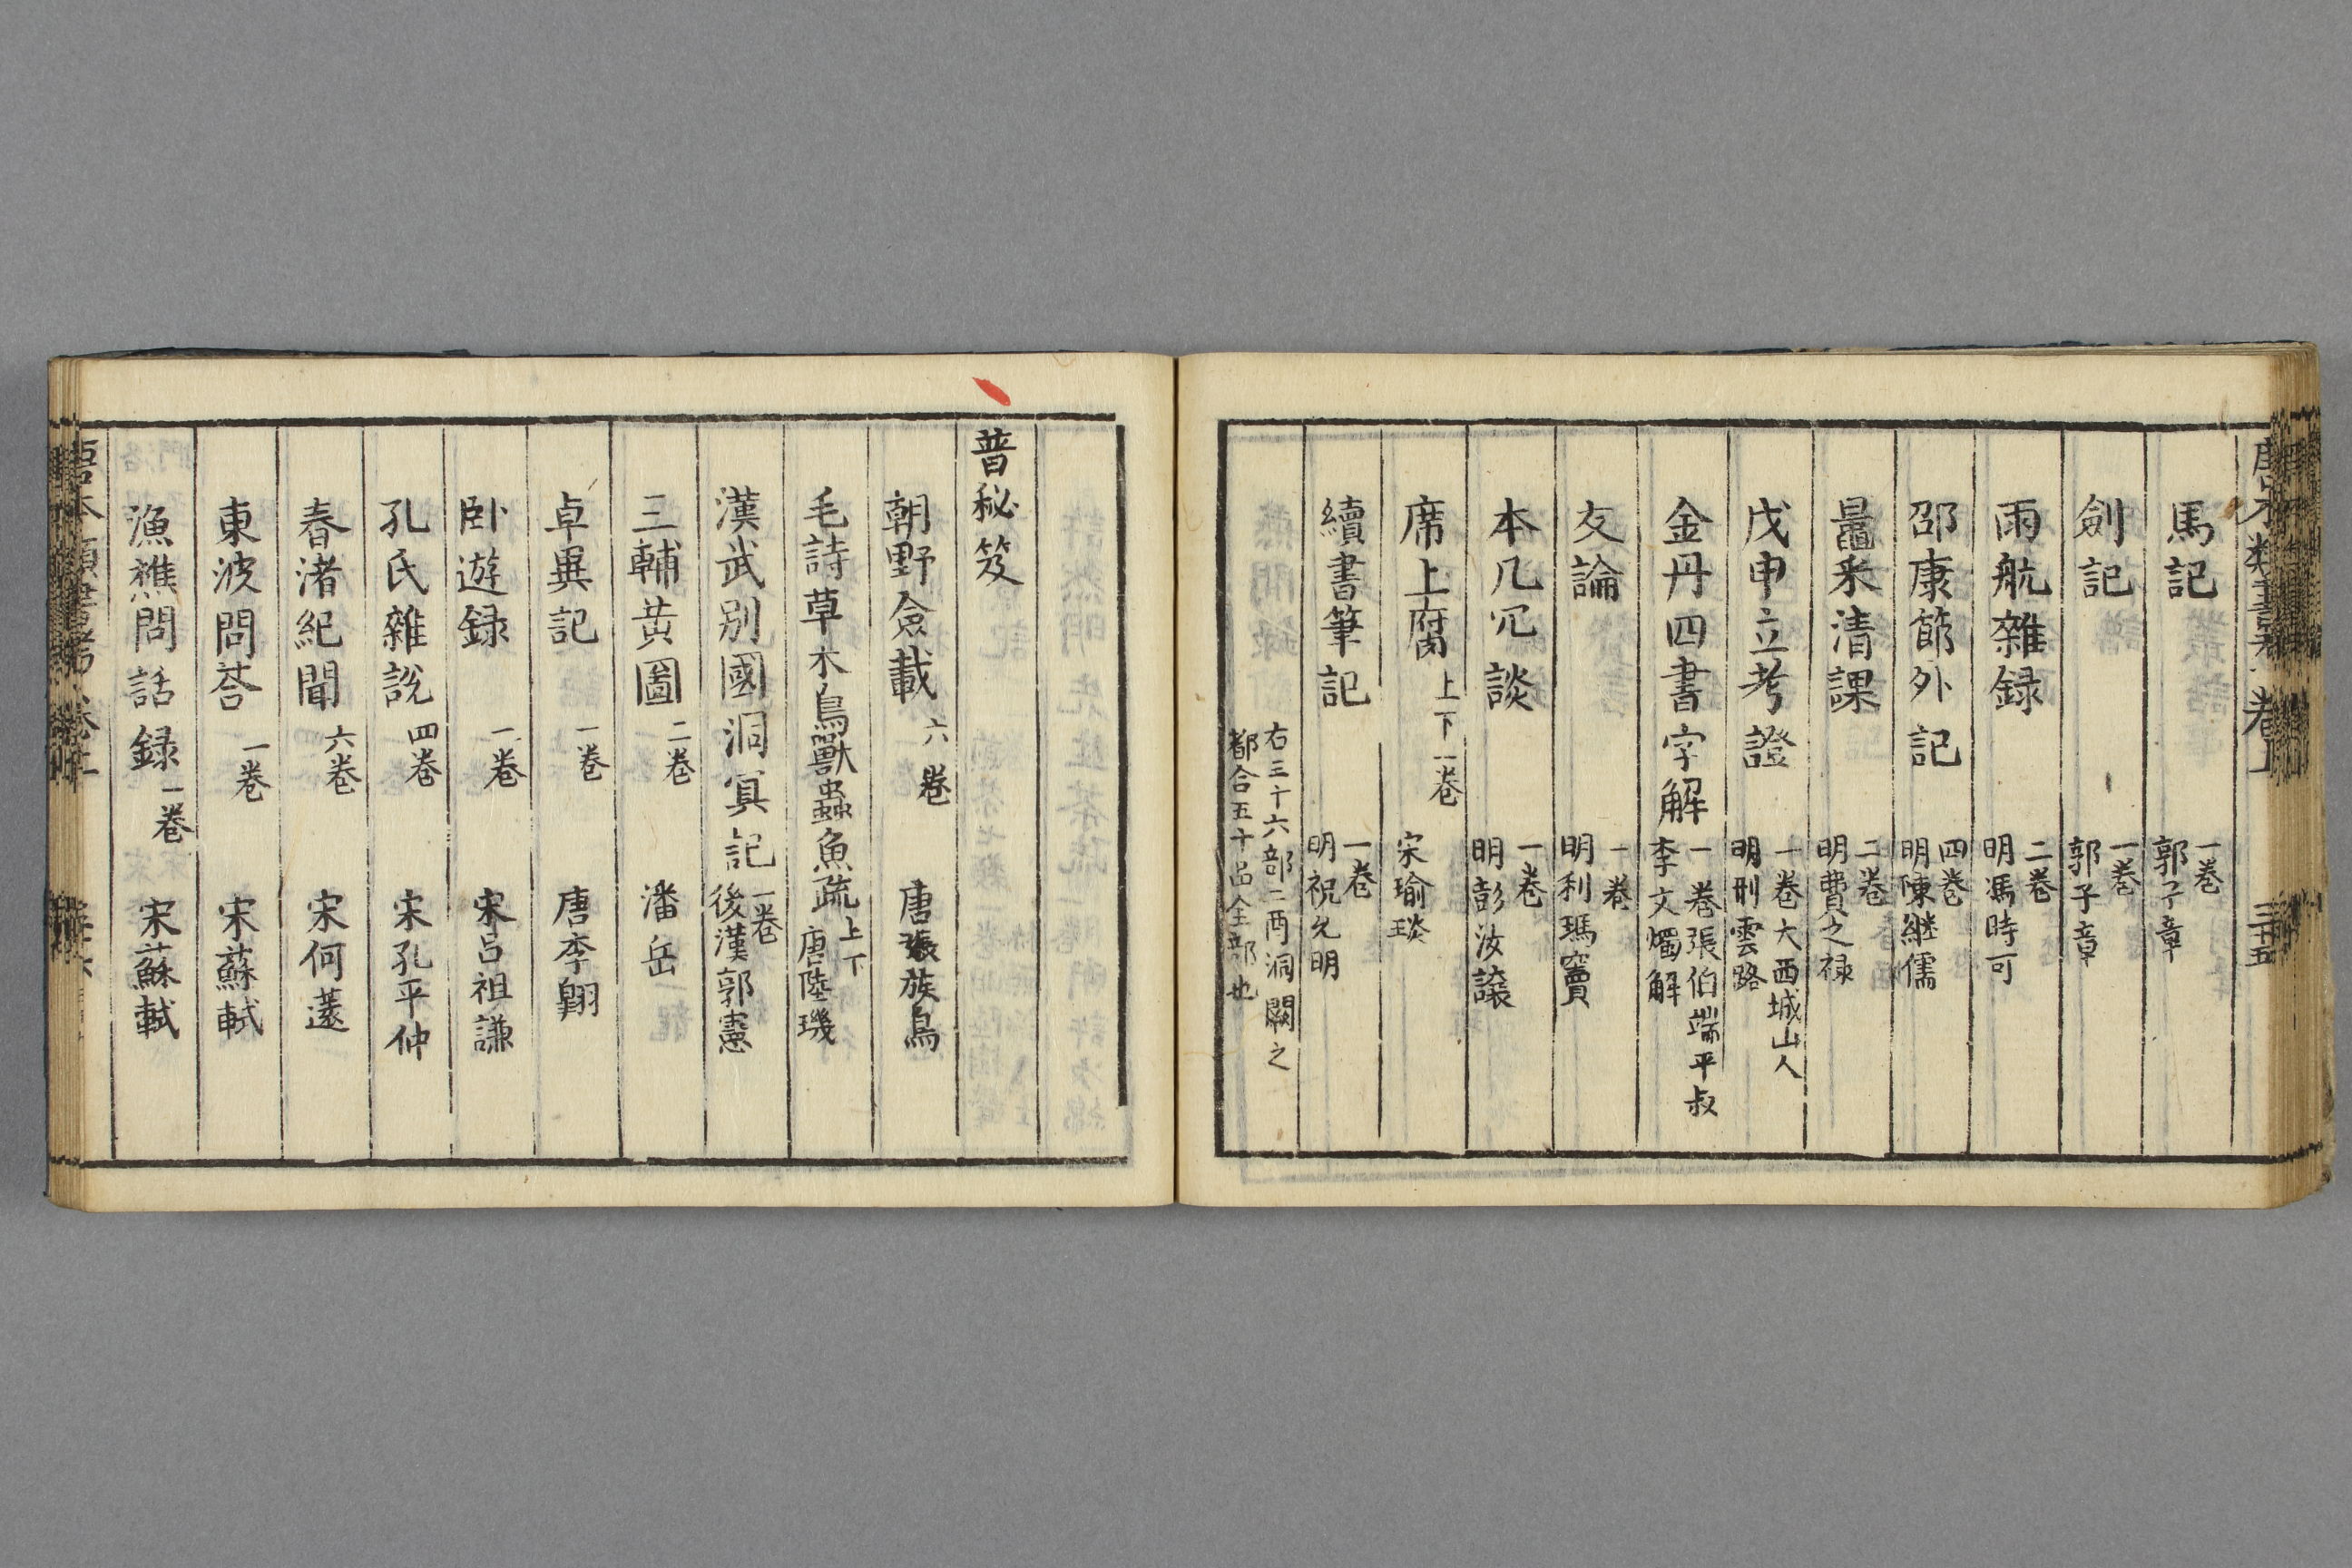 唐本類書考卷上 三十五
馬記 一卷 郭子章
劍記 一卷 郭子章
雨航雜録 二卷 明馮時可
邵康節外記 四卷 明陳継儒
鼂釆清課 二卷 明費之禄
戊申立考證 一卷大西城山人 明刑雲路
金丹四書字解 一卷張伯端平叔 李文燭解
友論 一卷 明利瑪竇
本几冗談 一卷 明彭汝讓
席上腐 上下一卷 宋瑜琰
續書筆記 一卷 明祝允明
右三十六部二酉洞闕之
都合五十品全部也
普秘笈
朝野僉載 六卷 唐張族鳥
毛詩草木鳥獸蟲魚疏 上下 唐陸璣
漢武別國洞冥記 一卷 後漢郭憲
三輔黄圖 二卷 潘岳
卓異記 一卷 唐李翺
卧遊録 一卷 宋呂祖謙
孔氏雜説 四卷 宋孔平仲
春渚紀聞 六卷 宋何薳
東波問荅 一卷 宋蘇軾
漁樵問話録 一卷 宋蘇軾
唐本類書考卷上